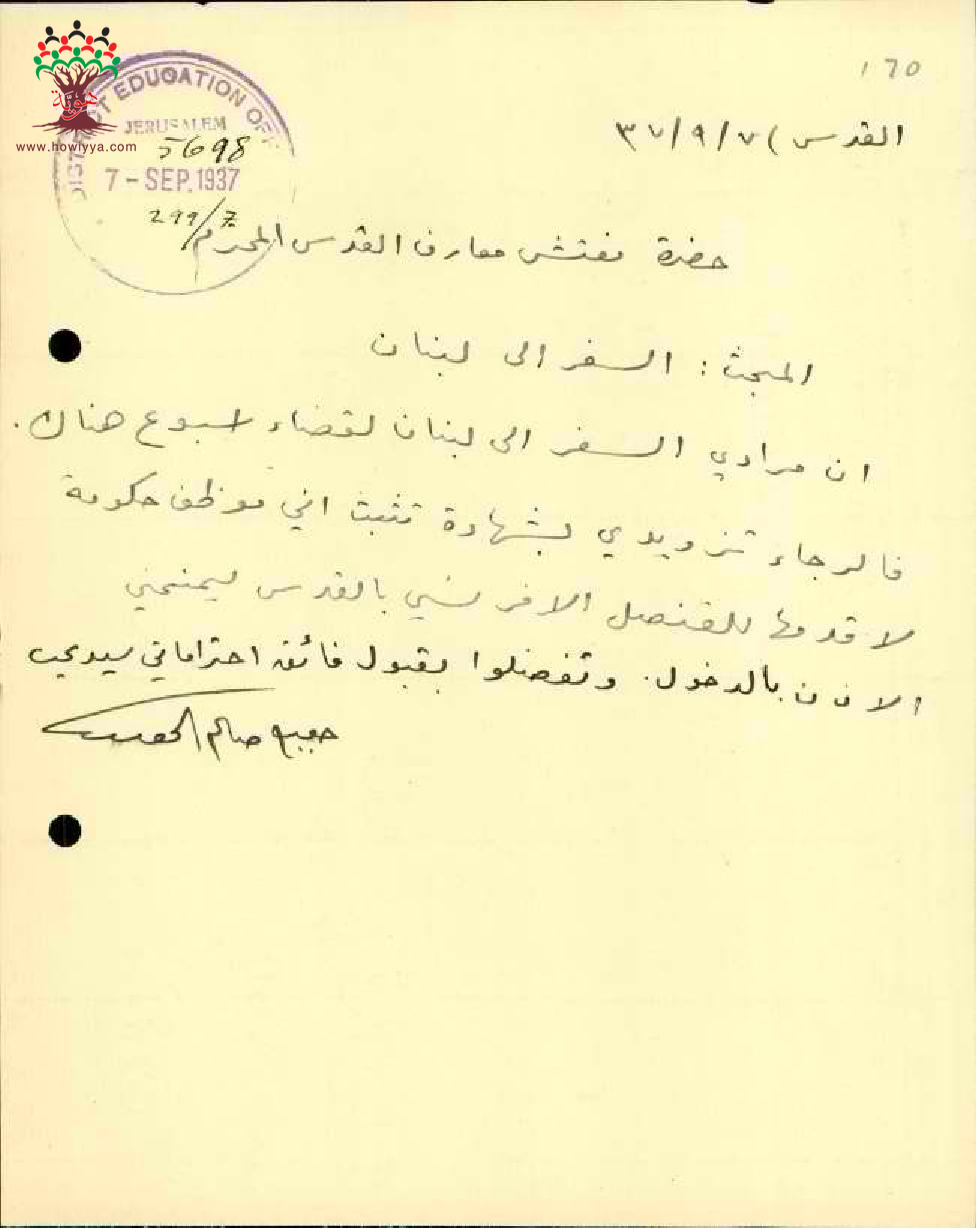 هوية
www.howiyya.com
DISTRICT EDUCATION OFF
JERUSALEM
5698
7 - SEP. 1937
299/7
170
القدس ) ٣٧/٩/٧
حضرة مفتش معارف القدس المحترم
المبحث : السفر الى لبنان
ان مرادي السفر الى لبنان لقضاء اسبوع هناك .
فالرجاء تزويدي بشهادة تثبت اني موظف حكومة
لاقدمها للقنصل الافرنسي بالقدس ليمنحني
الاذن بالدخول . وتفضلوا بقبول فائق احتراماتي سيدي
صالح